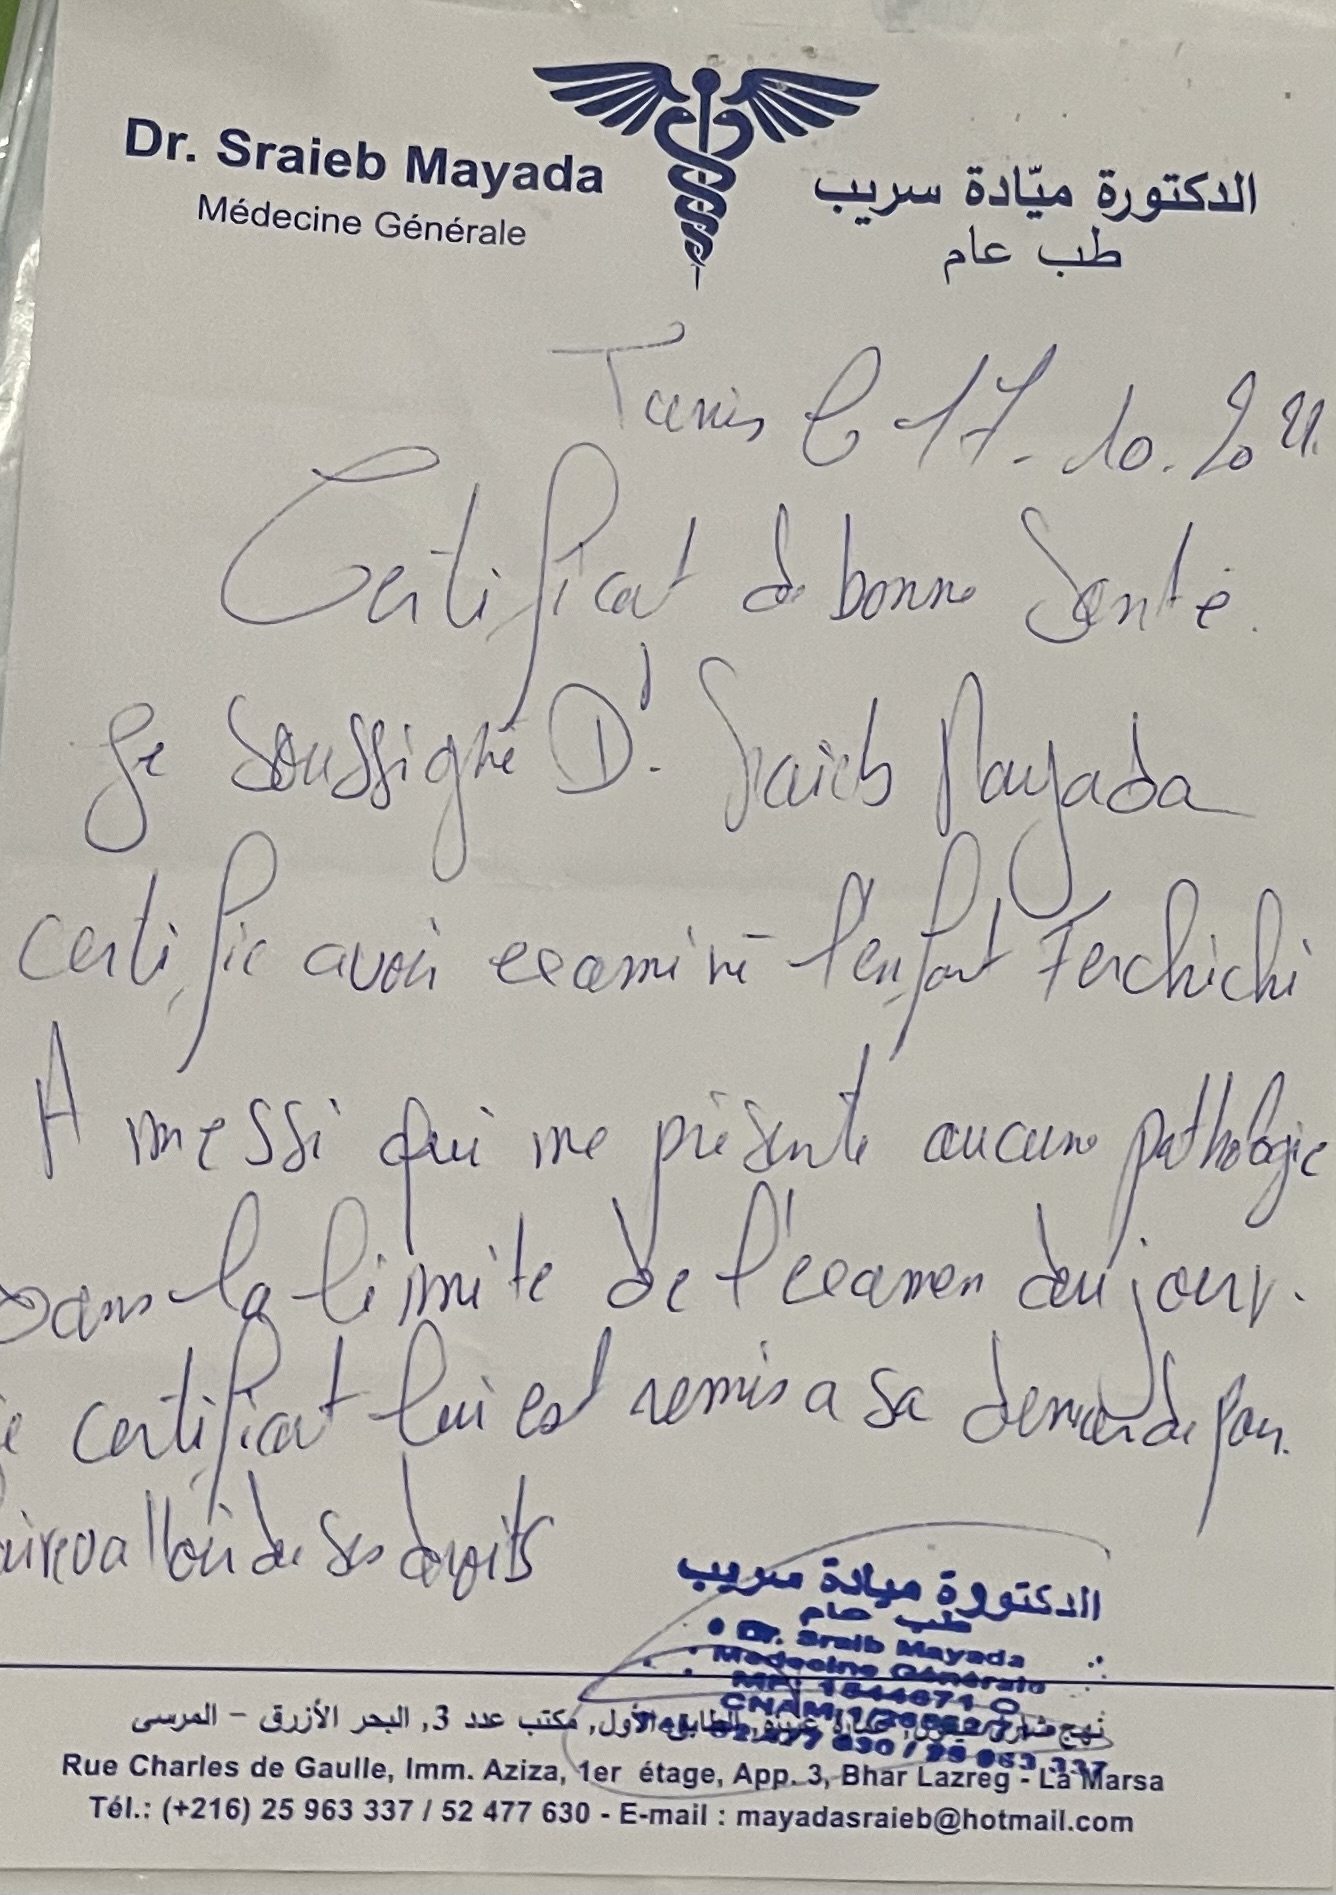 Dr. Sraieb Mayada
Médecine Générale
الدكتورة ميّادة سريب
طب عام
Tunis le 17.10.2021.
Certificat de bonne Santé.
Je soussigné Dr. Sraieb Mayada
certifie avoir examiné l'enfant Ferchichi
A messi qui ne présente aucune pathologie
Dans la limite de l'examen du jour.
certificat lui est remis a sa demande pour
valloir de ses droits
الدكتورة ميادة سريب
طب عام
Dr. Sraib Mayada
Medecine Générale
CNAM
نهج شارل ديغول, عمارة عزيزة, الطابق الأول, مكتب عدد 3, البحر الأزرق - المرسى
Rue Charles de Gaulle, Imm. Aziza, 1er étage, App. 3, Bhar Lazreg - La Marsa
Tél.: (+216) 25 963 337 / 52 477 630 - E-mail : mayadasraieb@hotmail.com